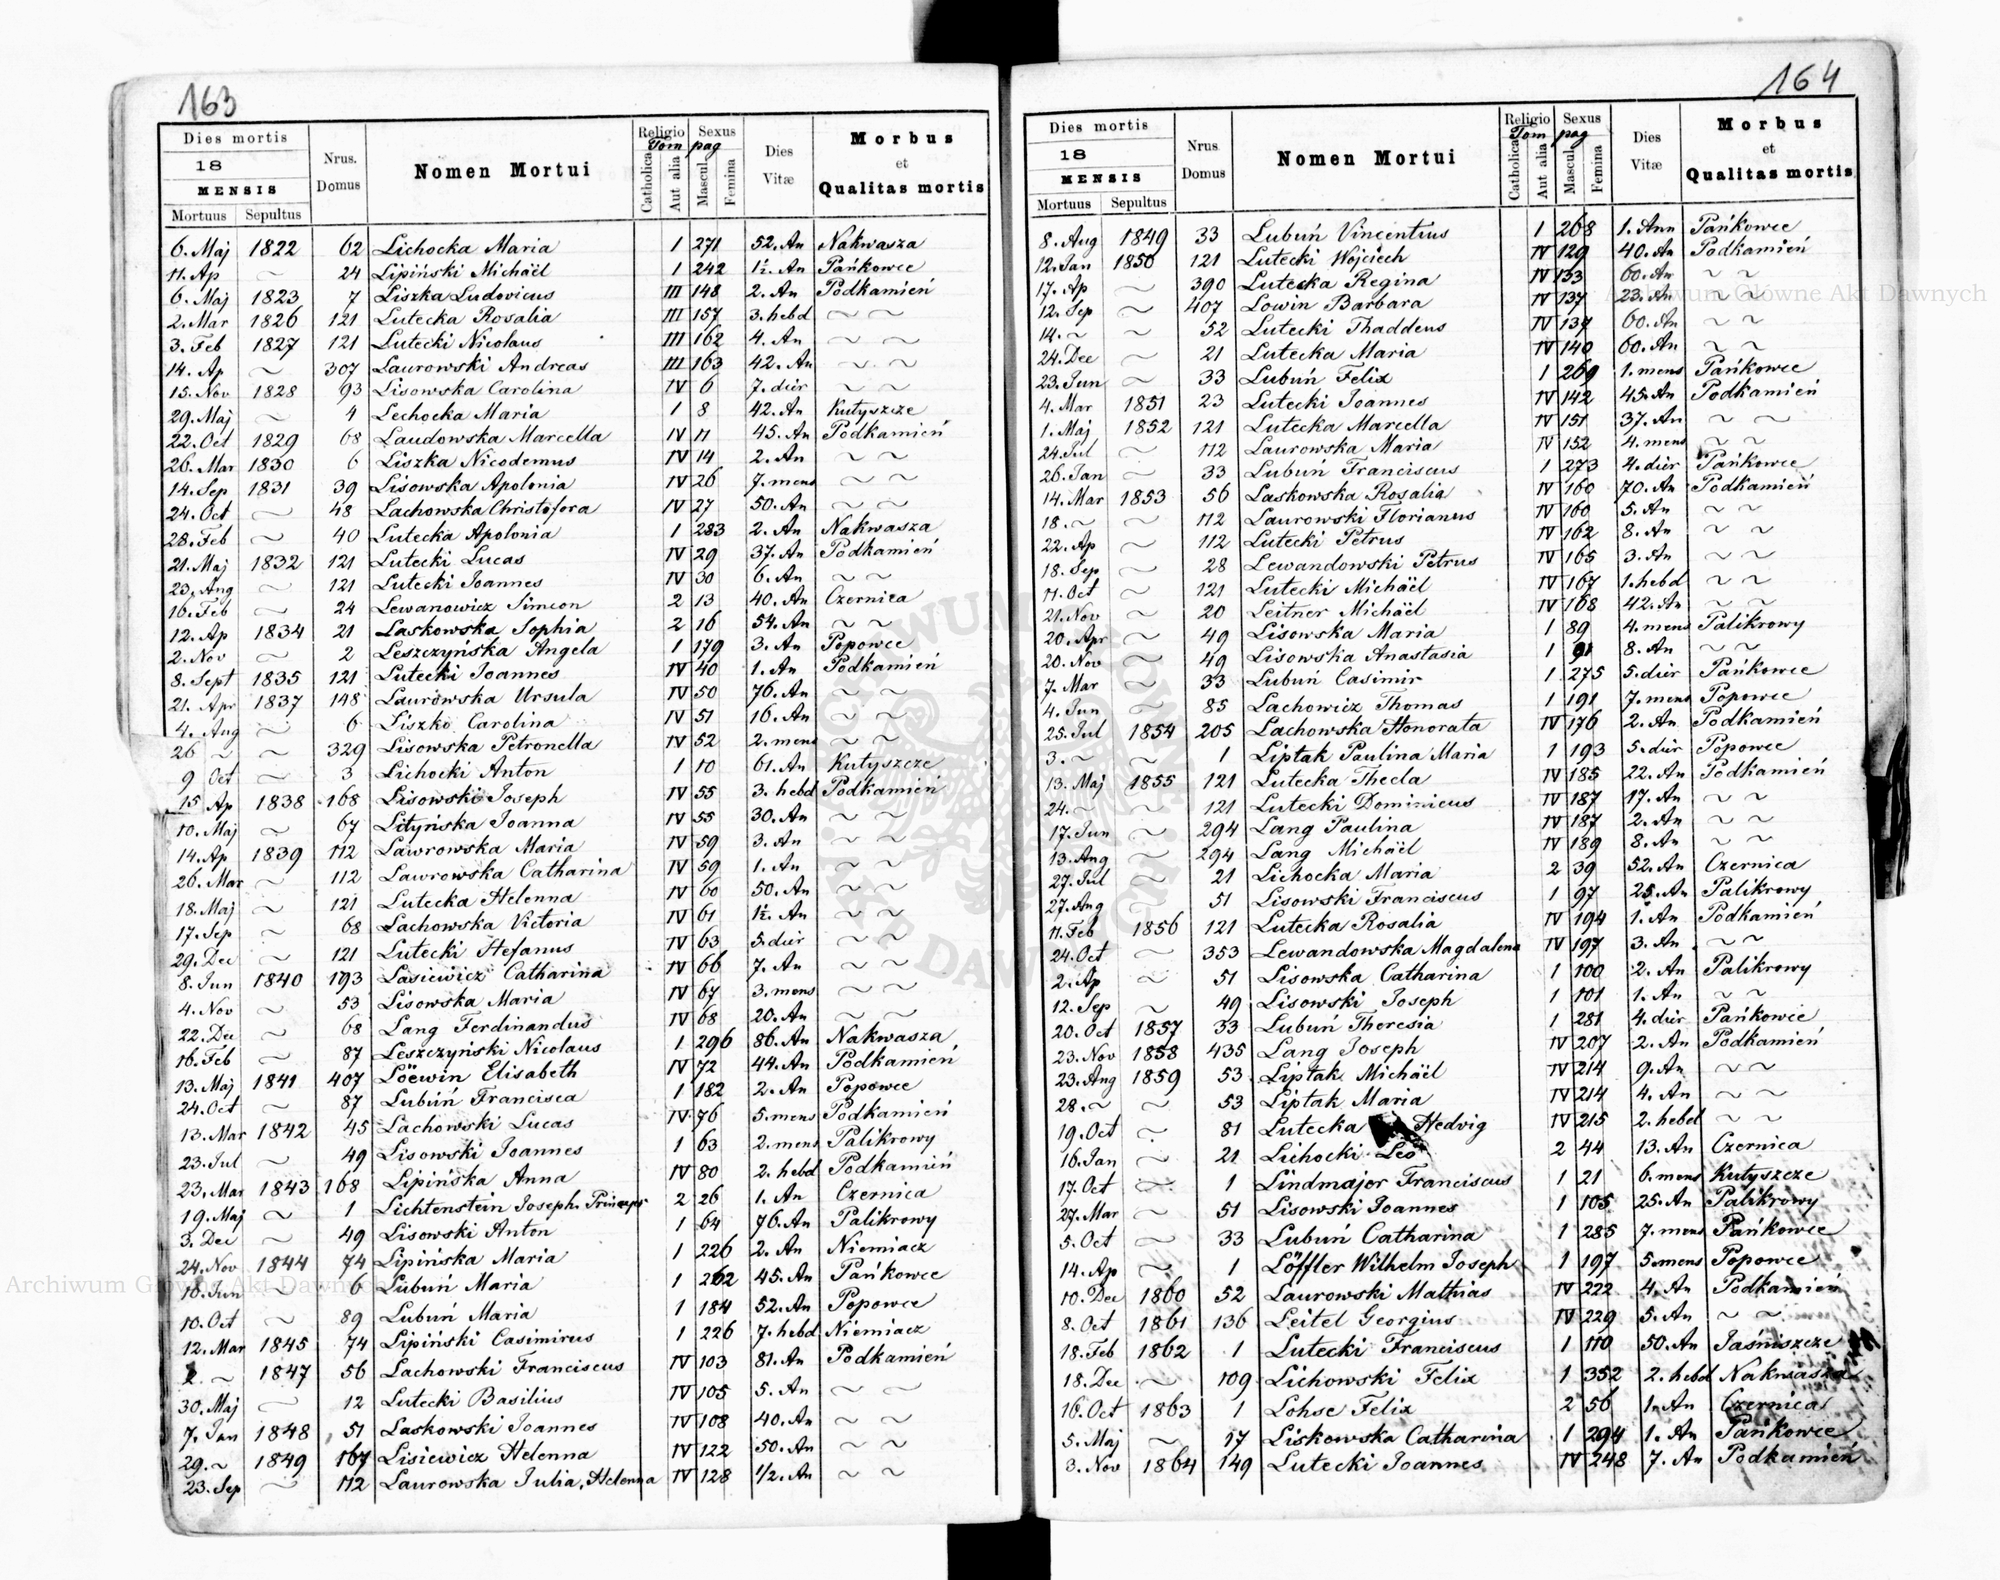 163
Dies mortis
18
MENSIS
Mortuus Sepultus
Nrus. Domus
Nomen Mortui
Religio Tom
Catholica Aut alia
Sexus pag
Mascul. Femina
Dies Vitæ
Morbus et Qualitas mortis
6. Maj 1822 62 Lichocka Maria 1 271 52. An Nakwasza
11. Ap ~ 24 Lipiński Michaël 1 242 1½. An Pańkowce
6. Maj 1823 7 Liszka Ludovicus III 148 2. An Podkamień
2. Mar 1826 121 Lutecka Rosalia III 157 3. hebd ~ ~
3. Feb 1827 121 Lutecki Nicolaus III 162 4. An ~ ~
14. Ap ~ 307 Laurowski Andreas III 163 42. An ~ ~
15. Nov 1828 93 Lisowska Carolina IV 6 7. dier ~ ~
29. Maj ~ 4 Lechocka Maria 1 8 42. An Kutyszcze
22. Oct 1829 68 Laudowska Marcella IV 11 45. An Podkamień
26. Mar 1830 6 Liszka Nicodemus IV 14 2. An ~ ~
14. Sep 1831 39 Lisowska Apolonia IV 26 7. mens ~ ~
24. Oct ~ 48 Lachowska Christofora IV 27 50. An ~ ~
28. Feb ~ 40 Lutecka Apolonia 1 283 2. An Nakwasza
21. Maj 1832 121 Lutecki Lucas IV 29 37. An Podkamień
23. Aug ~ 121 Lutecki Joannes IV 30 6. An ~ ~
16. Feb ~ 24 Lewanowicz Simeon 2 13 40. An Czernica
12. Ap 1834 21 Laskowska Sophia 2 16 54. An ~ ~
2. Nov ~ 2 Leszczyńska Angela 1 179 3. An Popowce
8. Sept 1835 121 Lutecki Joannes IV 40 1. An Podkamień
21. Apr 1837 148 Laurowska Ursula IV 50 76. An ~ ~
4. Aug ~ 6 Liszko Carolina IV 51 16. An ~ ~
26 ~ ~ 329 Lisowska Petronella IV 52 2. mens ~ ~
9 Oct ~ 3 Lichocki Anton 1 10 61. An Kutyszcze
15 Ap 1838 168 Lisowski Joseph IV 55 3. hebd Podkamień
10. Maj ~ 67 Lityńska Joanna IV 55 30. An ~ ~
14. Ap 1839 112 Lawrowska Maria IV 59 3. An ~ ~
26. Mar ~ 112 Lawrowska Catharina IV 59 1. An ~ ~
18. Maj ~ 121 Lutecka Helenna IV 60 50. An ~ ~
17. Sep ~ 68 Lachowska Victoria IV 61 1½. An ~ ~
29. Dec ~ 121 Lutecki Stefanus IV 63 5. dier ~ ~
8. Jun 1840 193 Lasiewicz Catharina IV 66 7. An ~ ~
4. Nov ~ 53 Lisowska Maria IV 67 3. mens ~ ~
22. Dec ~ 68 Lang Ferdinandus IV 68 20. An ~ ~
16. Feb ~ 87 Leszczyński Nicolaus 1 296 86. An Nakwasza
13. Maj 1841 407 Löewin Elisabeth IV 72 44. An Podkamień
24. Oct ~ 87 Lubuń Francisca 1 182 2. An Popowce
13. Mar 1842 45 Lachowski Lucas IV 76 5. mens Podkamień
23. Jul ~ 49 Lisowski Joannes 1 63 2. mens Palikrowy
23. Mar 1843 168 Lipińska Anna IV 80 2. hebd Podkamień
19. Maj ~ 1 Lichtenstein Joseph. Princeps 2 26 1. An Czernica
3. Dec ~ 49 Lisowski Anton 1 64 76. An Palikrowy
24. Nov 1844 74 Lipińska Maria 1 226 2. An Niemiacz
16. Jun ~ 6 Lubuń Maria 1 262 45. An Pańkowce
10. Oct ~ 89 Lubuń Maria 1 184 52. An Popowce
12. Mar 1845 74 Lipiński Casimirus 1 226 7. hebd Niemiacz
~ 1847 56 Lachowski Franciscus IV 103 81. An Podkamień
30. Maj ~ 12 Lutecki Basilius IV 105 5. An ~ ~
7. Jan 1848 51 Laskowski Joannes IV 108 40. An ~ ~
29. ~ 1849 167 Lisiewicz Helenna IV 122 50. An ~ ~
23. Sep ~ 112 Laurowska Julia, Helenna IV 128 1/2. An ~ ~
164
Dies mortis
18
MENSIS
Mortuus Sepultus
Nrus Domus
Nomen Mortui
Religio Tom
Catholica Aut alia
Sexus pag
Mascul. Femina
Dies Vitæ
Morbus et Qualitas mortis
8. Aug 1849 33 Lubuń Vincentius 1 268 1. Ann Pańkowce
12. Jan 1850 121 Lutecki Wojciech IV 129 40. An Podkamień
17. Ap ~ 390 Lutecka Regina IV 133 60. An ~ ~
12. Sep ~ 407 Lowin Barbara IV 137 23. An ~ ~
14. ~ ~ 52 Lutecki Thaddeus IV 137 60. An ~ ~
24. Dec ~ 21 Lutecka Maria IV 140 60. An ~ ~
23. Jun ~ 33 Lubuń Felix 1 269 1. mens Pańkowce
4. Mar 1851 23 Lutecki Joannes IV 142 45. An Podkamień
1. Maj 1852 121 Lutecka Marcella IV 151 37. An ~ ~
24. Jul ~ 112 Laurowska Maria IV 152 4. mens ~ ~
26. Jan ~ 33 Lubuń Franciscus 1 273 4. dier Pańkowce
14. Mar 1853 56 Laskowska Rosalia IV 160 70. An Podkamień
18. ~ ~ 112 Laurowski Florianus IV 160 5. An ~ ~
22. Ap ~ 112 Lutecki Petrus IV 162 8. An ~ ~
18. Sep ~ 28 Lewandowski Petrus IV 165 3. An ~ ~
11. Oct ~ 121 Lutecki Michaël IV 167 1. hebd ~ ~
21. Nov ~ 20 Leitner Michaël IV 168 42. An ~ ~
20. Apr ~ 49 Lisowska Maria 1 89 4. mens Palikrowy
20. Nov ~ 49 Lisowska Anastasia 1 91 8. An ~ ~
7. Mar ~ 33 Lubuń Casimir 1 275 5. dier Pańkowce
4. Jun ~ 85 Lachowicz Thomas 1 191 7. mens Popowce
25. Jul 1854 205 Lachowska Honorata IV 176 2. An Podkamień
3. ~ ~ 1 Liptak Paulina Maria 1 193 5. dier Popowce
13. Maj 1855 121 Lutecka Thecla IV 185 22. An Podkamień
24. ~ ~ 121 Lutecki Dominicus IV 187 17. An ~ ~
17. Jun ~ 294 Lang Paulina IV 187 2. An ~ ~
13. Aug ~ 294 Lang Michaël IV 189 8. An ~ ~
27. Jul ~ 21 Lichocka Maria 2 39 52. An Czernica
27. Aug ~ 51 Lisowski Franciscus 1 97 25. An Palikrowy
11. Feb 1856 121 Lutecka Rosalia IV 194 1. An Podkamień
24. Oct ~ 353 Lewandowska Magdalena IV 197 3. An ~ ~
2. Ap ~ 51 Lisowska Catharina 1 100 2. An Palikrowy
12. Sep ~ 49 Lisowski Joseph 1 101 1. An ~ ~
20. Oct 1857 33 Lubuń Theresia 1 281 4. dier Pańkowce
23. Nov 1858 435 Lang Joseph IV 207 2. An Podkamień
23. Aug 1859 53 Liptak Michaël IV 214 9. An ~ ~
28. ~ ~ 53 Liptak Maria IV 214 4. An ~ ~
19. Oct ~ 81 Lutecka Hedvig IV 215 2. hebd ~ ~
16. Jan ~ 21 Lichocki Leo 2 44 13. An Czernica
17. Oct ~ 1 Lindmajer Franciscus 1 21 6. mens Kutyszcze
27. Mar ~ 51 Lisowski Joannes 1 105 25. An Palikrowy
5. Oct ~ 33 Lubuń Catharina 1 285 7. mens Pańkowce
14. Ap ~ 1 Löffler Wilhelm Joseph 1 197 5. mens Popowce
10. Dec 1860 52 Laurowski Mathias IV 222 4. An Podkamień
8. Oct 1861 136 Leitel Georgius IV 229 5. An ~ ~
18. Feb 1862 1 Lutecki Franciscus 1 110 50. An Jaśniszcze
18. Dec ~ 109 Lichowski Felix 1 352 2. hebd Nakwasza
16. Oct 1863 1 Lohse Felix 2 56 1. An Czernica
5. Maj ~ 17 Liskowska Catharina 1 294 1. An Pańkowce
3. Nov 1864 149 Lutecki Joannes IV 248 7. An Podkamień
Archiwum Główne Akt Dawnych
Archiwum Główne Akt Dawnych